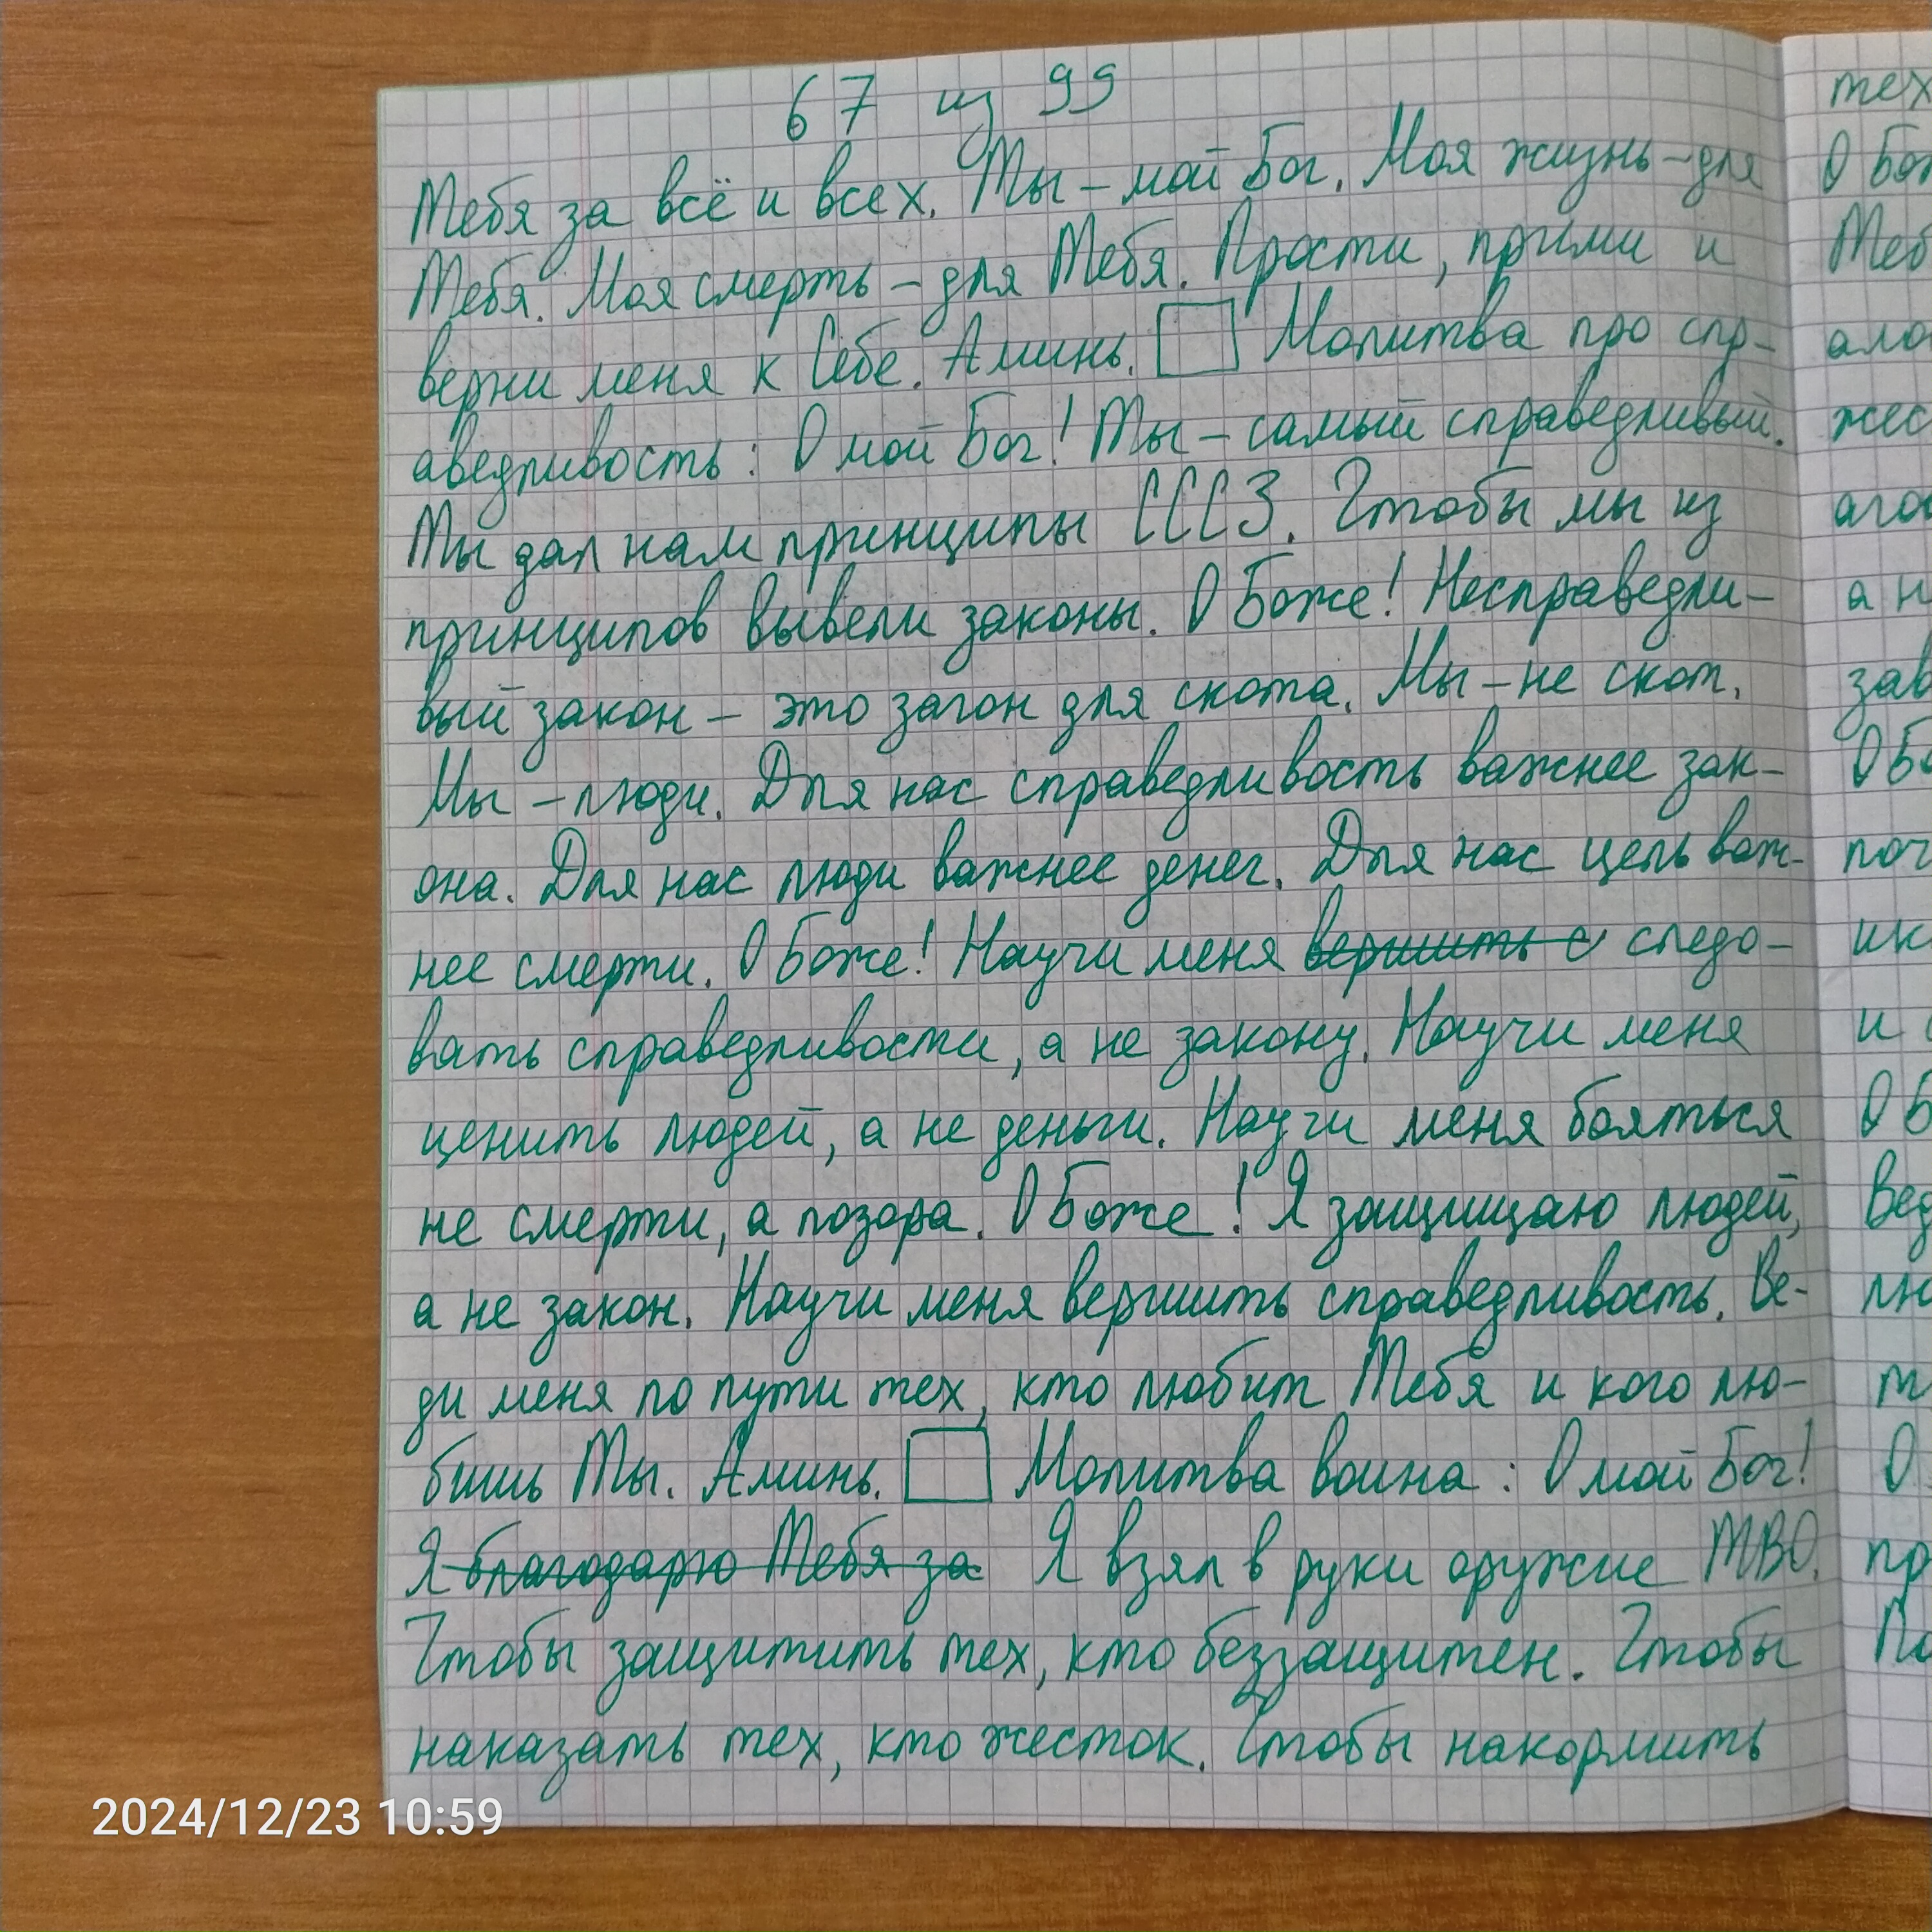 67 из 99
Тебя за всё и всех. Ты – мой Бог. Моя жизнь – для
Тебя. Моя смерть – для Тебя. Прости, прими и
верни меня к Себе. Аминь. Молитва про спр-
аведливость: О мой Бог! Ты – самый справедливый.
Ты дал нам принципы СССЗ. Чтобы мы из
принципов вывели законы. О Боже! Несправедли-
вый закон – это загон для скота. Мы – не скот.
Мы – люди. Для нас справедливость важнее зак-
она. Для нас люди важнее денег. Для нас цель важ-
нее смерти. О Боже! Научи меня вершить с следо-
вать справедливости, а не закону. Научи меня
ценить людей, а не деньги. Научи меня бояться
не смерти, а позора. О Боже! Я защищаю людей,
а не закон. Научи меня вершить справедливость. Ве-
ди меня по пути тех, кто любит Тебя и кого лю-
бишь Ты. Аминь. Молитва воина: О мой Бог!
Я благодарю Тебя за Я взял в руки оружие ТВО.
Чтобы защитить тех, кто беззащитен. Чтобы
наказать тех, кто жесток. Чтобы накормить
тех
О Бож
Теб
ало
жес
аго
а н
зав
О Бо
поч
ик
и
О Б
Вед
лю
т
О
пр
По
2024/12/23 10:59